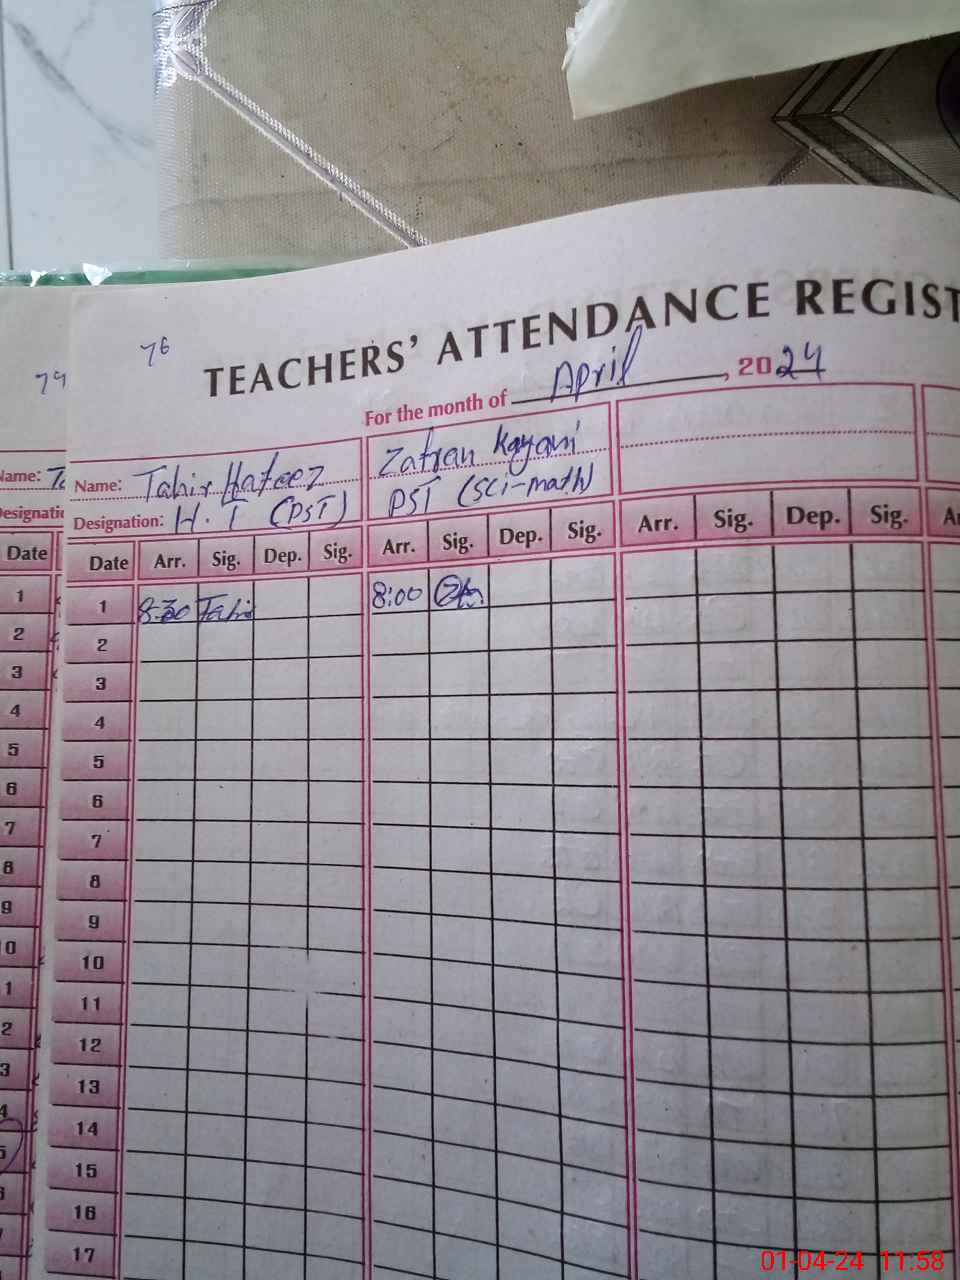 76
TEACHERS' ATTENDANCE REGIST
For the month of April, 2024
79
Name: Tahir Hafeez
Zafran Kayani
Designation: H.T (PST)
PST (Sci-math)
Name:
Designatio
Date
1
2
3
4
5
6
7
8
9
0
1
2
3
4
5
Date Arr. Sig. Dep. Sig. Arr. Sig. Dep. Sig. Arr. Sig. Dep. Sig.
1 8:30 Tahir 8:00
2
3
4
5
6
7
8
9
10
11
12
13
14
15
16
17
01-04-24 11:58